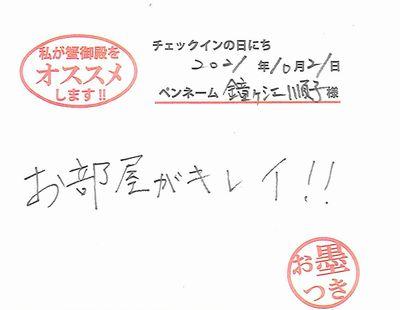 私が蟹御殿を
オススメ
します!!
チェックインの日にち
2021年10月21日
ペンネーム 鐘ヶ江順子様
お部屋がキレイ!!
お墨
つき